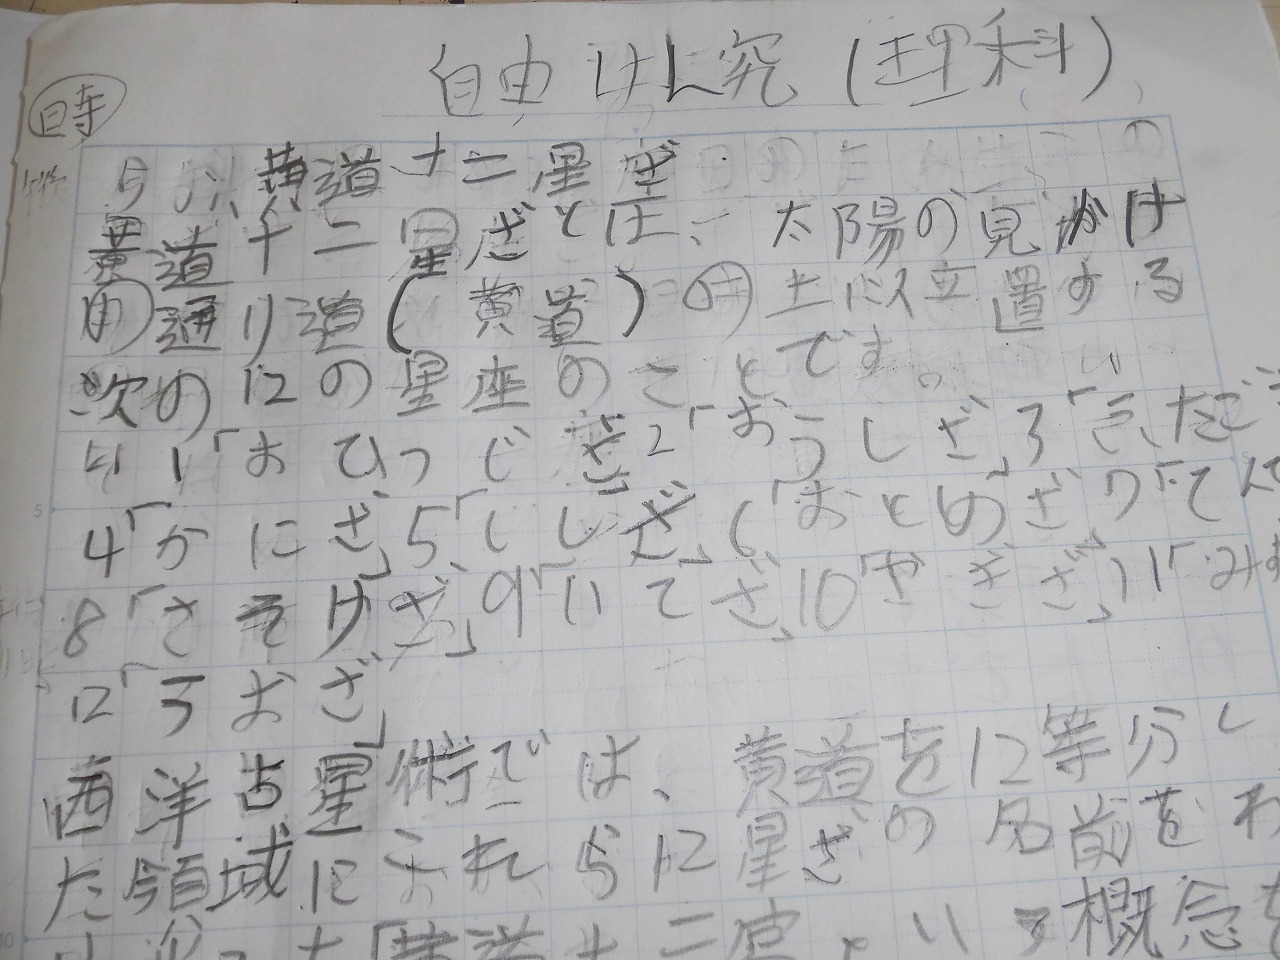 自由けん究(理科)
時
今 黄道十二星ざ
黄道十二星ざとは、太陽の見かけ
通り道(黄道) 上に位置する
次の12の星座のことです。
1「おひつじざ」2「おうしざ」3「ふたご
4「かにざ」5「ししざ」6「おとめざ」7「てん
8「さそりざ」9「いてざ」10「やぎざ」11「みず
12「うおざ」
西洋占星術では、黄道を12等分し
た領域にこれら12星ざの名前を
「黄道十二宮」いう概念を